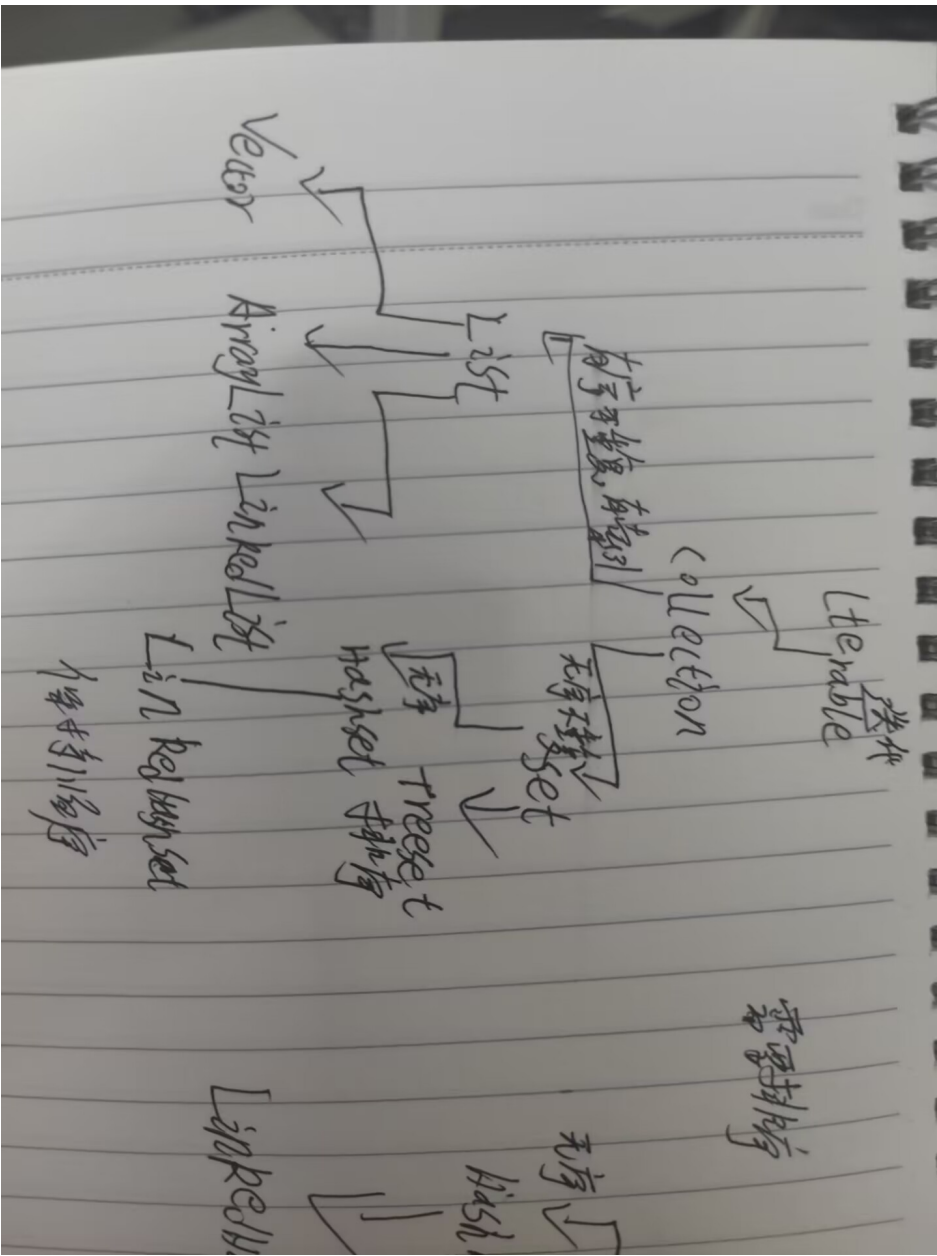 Iterable
迭代
Collection
有序可重复,有索引
无序不重复
List
Set
Vector
ArrayList
LinkedList
无序
HashSet
Treeset
排序
LinkedHashSet
无序
Hash